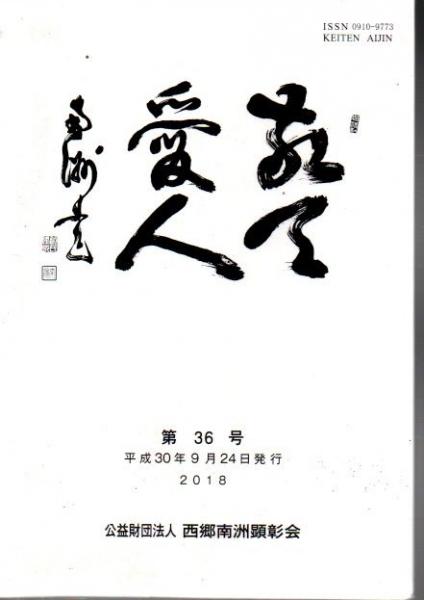 ISSN 0910-9773
KEITEN AIJIN
敬天
愛人
南洲書
第 36 号
平成30年9月24日発行
2018
公益財団法人 西郷南洲顕彰会